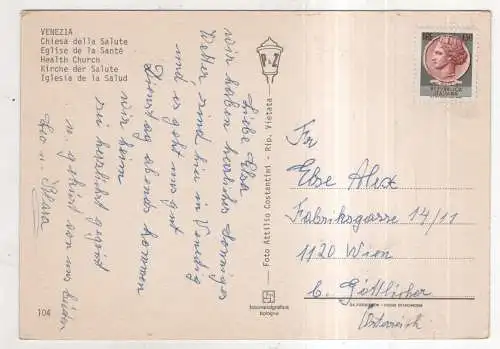 VENEZIA
Chiesa della Salute
Eglise de la Santé
Health Church
Kirche der Salute
Iglesia de la Salud
Liebe Elsa
wir haben herrliches sonniges
Wetter, sind hier in Venedig
und es geht uns gut
Dienstag abends kommen
wir heim
sei herzlichst gegrüßt
u. geküsst von uns beiden
Leo u. Klara
104
Foto Attilio Costantini - Rip. Vietata
bologna
REPUBBLICA
ITALIANA
Fr
Else Alex
Fabriksgasse 14/11
1120 Wien
b. Göttlicher
Österreich